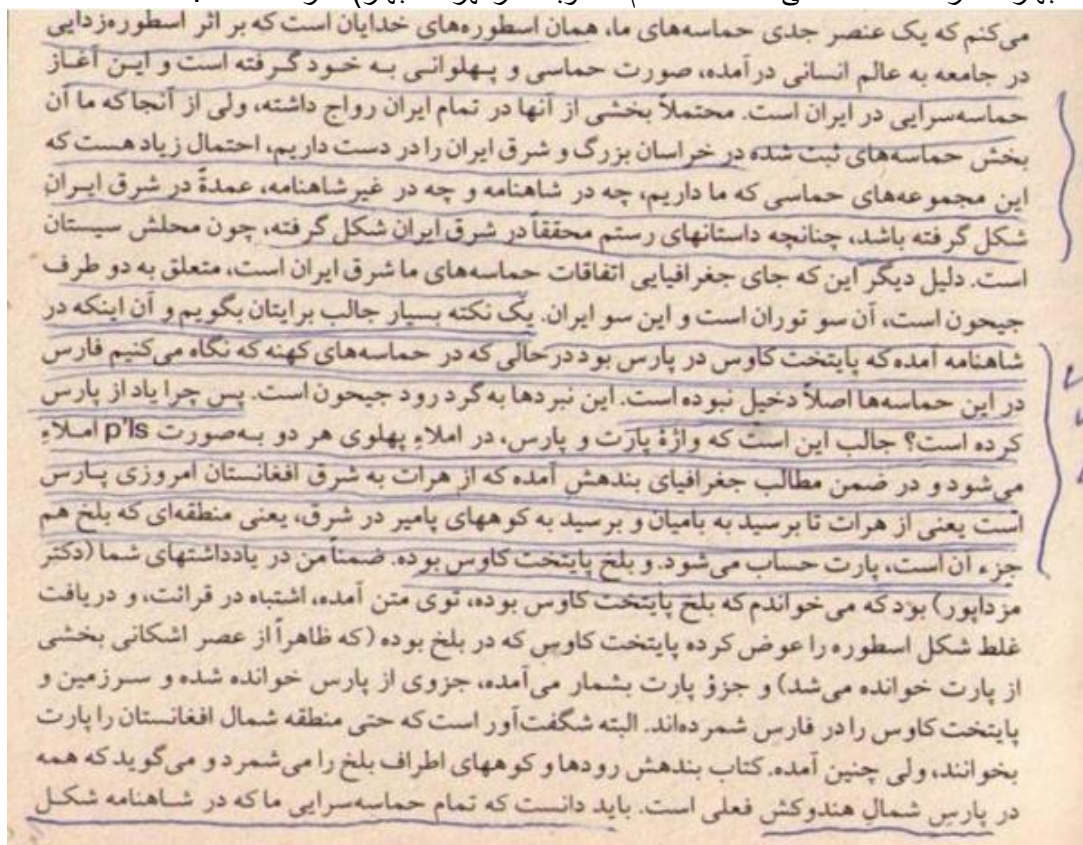 می‌کنم که یک عنصر جدی حماسه‌های ما، همان اسطوره‌های خدایان است که بر اثر اسطوره‌زدایی
در جامعه به عالم انسانی درآمده، صورت حماسی و پهلوانی به خود گرفته است و این آغاز
حماسه‌سرایی در ایران است. محتملاً بخشی از آنها در تمام ایران رواج داشته، ولی از آنجا که ما آن
بخش حماسه‌های ثبت شده در خراسان بزرگ و شرق ایران را در دست داریم، احتمال زیاد هست که
این مجموعه‌های حماسی که ما داریم، چه در شاهنامه و چه در غیرشاهنامه، عمدةً در شرق ایران
شکل گرفته باشد، چنانچه داستانهای رستم محققاً در شرق ایران شکل گرفته، چون محلش سیستان
است. دلیل دیگر این که جای جغرافیایی اتفاقات حماسه‌های ما شرق ایران است، متعلق به دو طرف
جیحون است، آن سو توران است و این سو ایران. یک نکته بسیار جالب برایتان بگویم و آن اینکه در
شاهنامه آمده که پایتخت کاوس در پارس بود در حالی که در حماسه‌های کهنه که نگاه می‌کنیم فارس
در این حماسه‌ها اصلاً دخیل نبوده است. این نبردها به گرد رود جیحون است. پس چرا یاد از پارس
کرده است؟ جالب این است که واژهٔ پارت و پارس، در املاءِ پهلوی هر دو به‌صورت p'ls املاءِ
می‌شود و در ضمن مطالب جغرافیای بندهش آمده که از هرات به شرق افغانستان امروزی پارس
است یعنی از هرات تا برسید به بامیان و برسید به کوههای پامیر در شرق، یعنی منطقه‌ای که بلخ هم
جزء آن است، پارت حساب می‌شود. و بلخ پایتخت کاوس بوده. ضمناً من در یادداشتهای شما (دکتر
مزداپور) بود که می‌خواندم که بلخ پایتخت کاوس بوده، توی متن آمده، اشتباه در قرائت، و دریافت
غلط شکل اسطوره را عوض کرده پایتخت کاوس که در بلخ بوده (که ظاهراً از عصر اشکانی بخشی
از پارت خوانده می‌شد) و جزؤ پارت بشمار می‌آمده، جزوی از پارس خوانده شده و سرزمین و
پایتخت کاوس را در فارس شمرده‌اند. البته شگفت‌آور است که حتی منطقه شمال افغانستان را پارت
بخوانند، ولی چنین آمده. کتاب بندهش رودها و کوههای اطراف بلخ را می‌شمرد و می‌گوید که همه
در پارسِ شمالِ هندوکش فعلی است. باید دانست که تمام حماسه‌سرایی ما که در شاهنامه شکل